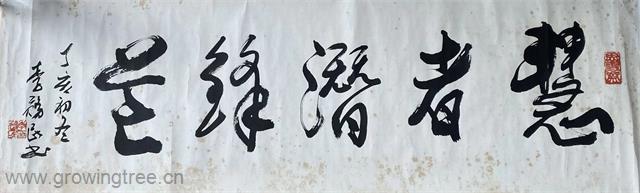 慧者潛鋒芒
丁亥初冬
李
书
www.growingtree.cn